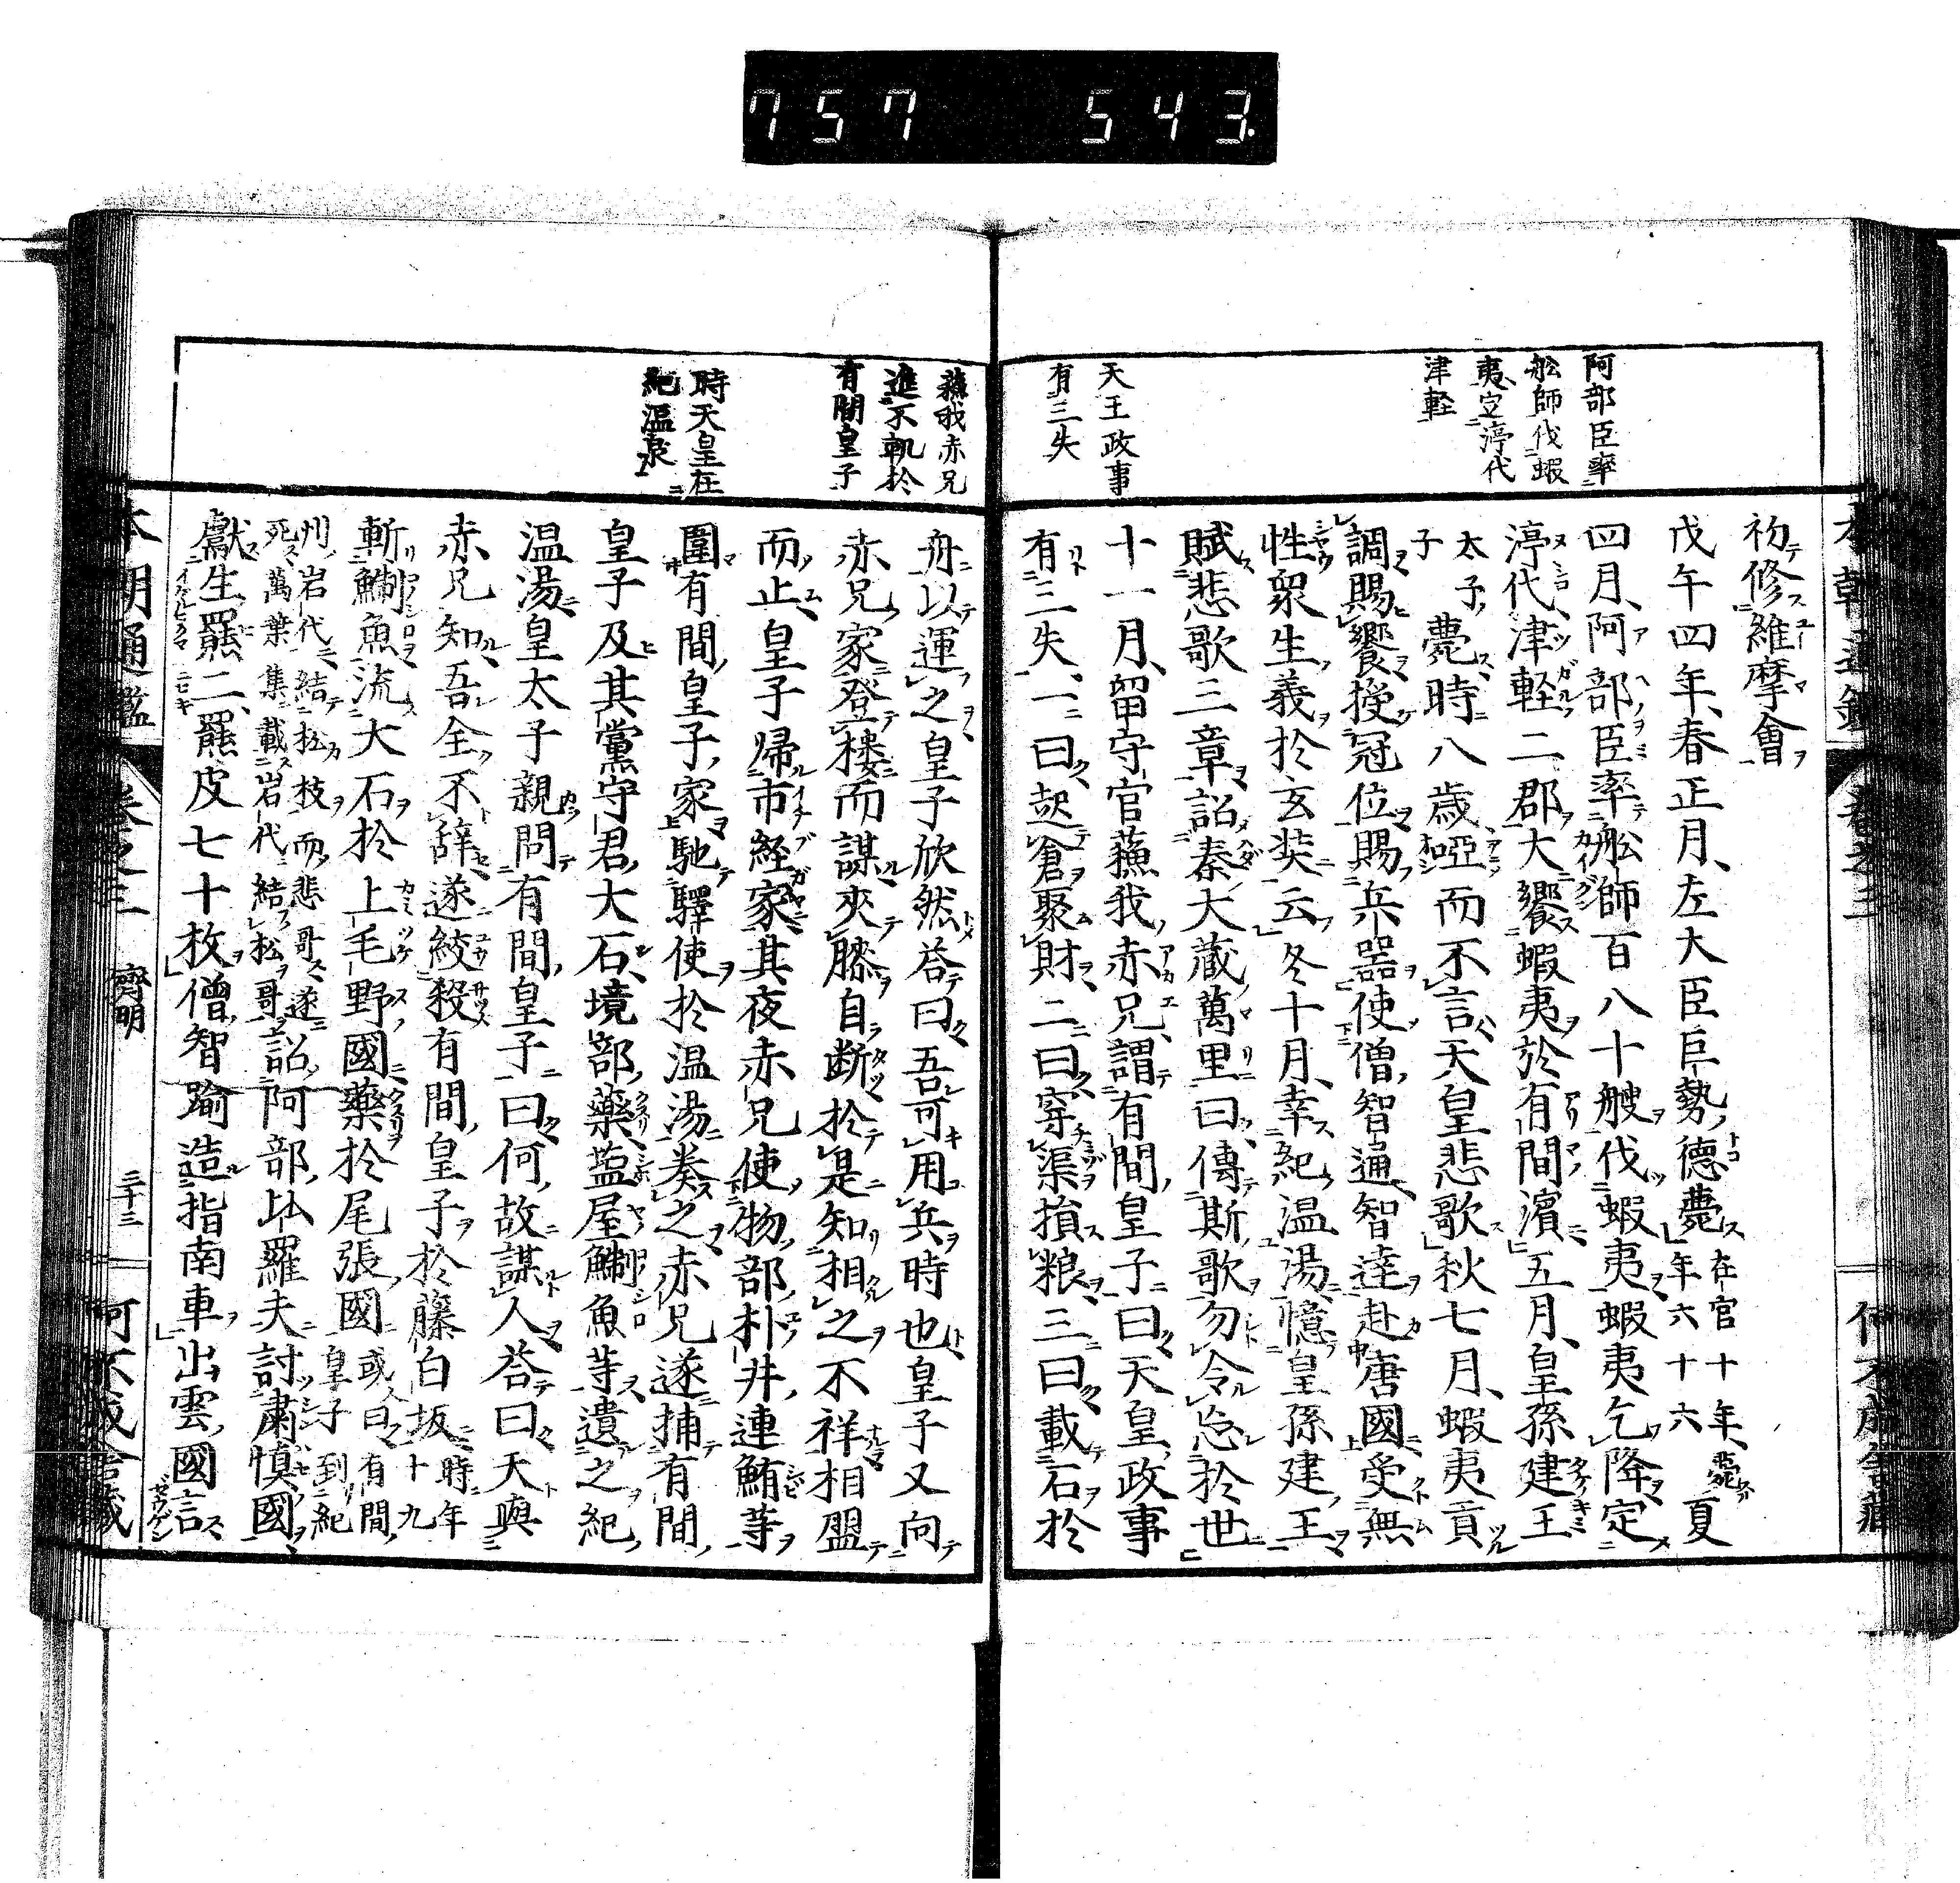 757 543.
阿部臣率
舩師伐蝦
夷定渟代
津軽
天王政事
有三失
初修維摩會
戊午四年、春正月、左大臣巨勢德薨在官十年、薨年六十六夏
四月、阿部臣率舩師百八十艘伐蝦夷、蝦夷乞降、定
渟代、津軽二郡、大饗蝦夷於有間濱、五月、皇孫建王
太子子薨、時八歳啞而不言、天皇悲歌、秋七月、蝦夷貢
調、賜饗授冠位賜兵器使僧智通智達赴唐國受無
性衆生義於玄奘云、冬十月、幸紀温湯、憶皇孫建王
賦悲歌三章、詔秦大蔵萬里曰、傳斯歌勿令忘於世
十一月、留守官蘓我赤兄、謂有間皇子曰、天皇政事
有三失、一曰、起倉聚財、二曰、穿渠損粮、三曰、載石於
蘓我赤兄
進不軌於
有間皇子
時天皇在
紀温泉
舟以運之、皇子欣然荅曰、吾可用兵時也、皇子又向
赤兄家登楼而謀、夾膝自断、於是知相之不祥相盟
而止、皇子帰市経家、其夜赤兄使物部朴井連鮪等
圍有間皇子家馳驛使於温湯奏之、赤兄遂捕有間
皇子及其黨守君大石、境部藥、塩屋鯯魚等遣之紀
温湯、皇太子親問有間皇子曰、何故謀人、荅曰、天與
赤兄知、吾全不辞、遂絞殺有間皇子於藤白坂時年十九
斬鯯魚流大石於上毛野國藥於尾張國或人曰、有間皇子到紀
州岩代、結松枝而悲哥、遂死、萬葉集載岩代結松哥詔阿部比羅夫討肅慎國、
獻生羆二、羆皮七十枚、僧智踰造指南車、出雲國言
本朝通鑑 卷之三 齊明 三十三 何不成舎藏